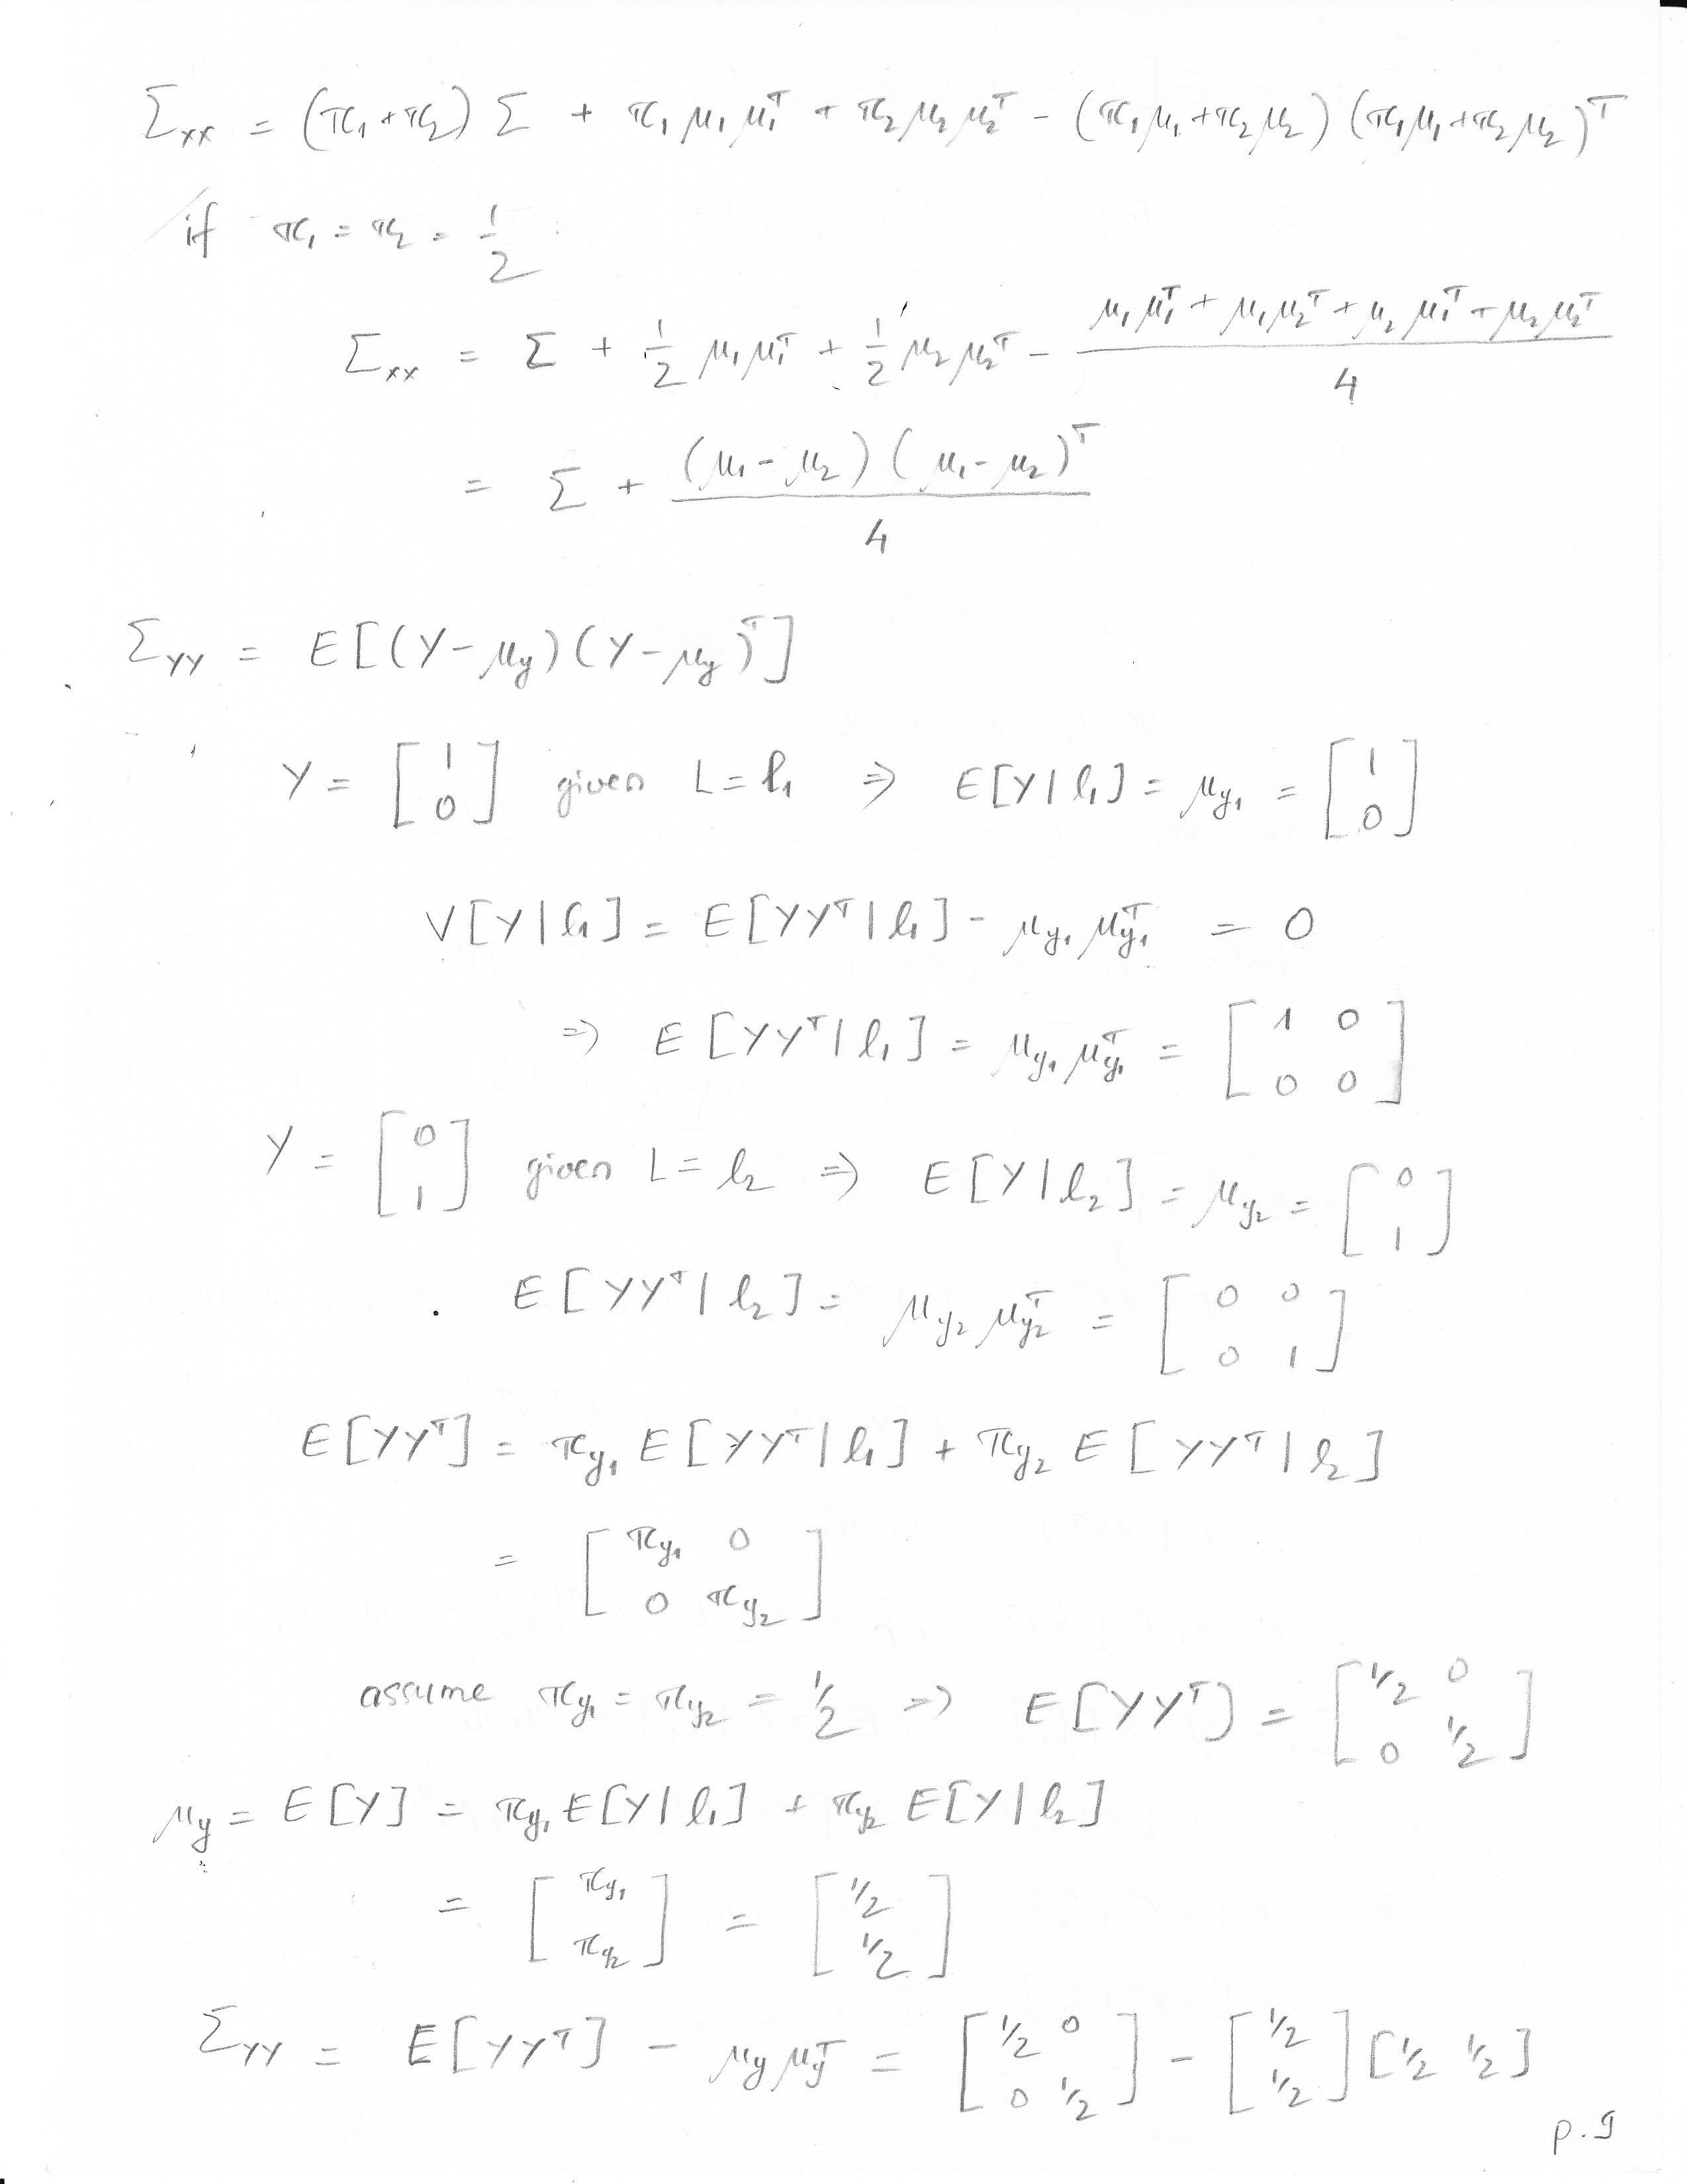 Σ_xx = (π₁+π₂) Σ + π₁ μ₁ μ₁ᵀ + π₂ μ₂ μ₂ᵀ - (π₁μ₁+π₂μ₂) (π₁μ₁+π₂μ₂)ᵀ
if π₁ = π₂ = 1/2
Σ_xx = Σ + 1/2 μ₁μ₁ᵀ + 1/2 μ₂μ₂ᵀ - (μ₁μ₁ᵀ + μ₁μ₂ᵀ + μ₂μ₁ᵀ + μ₂μ₂ᵀ)/4
= Σ + (μ₁ - μ₂)(μ₁ - μ₂)ᵀ/4
Σ_YY = E[(Y-μ_y)(Y-μ_y)ᵀ]
Y = [1; 0] given L = l₁ ⇒ E[Y|l₁] = μ_y₁ = [1; 0]
V[Y|l₁] = E[YYᵀ|l₁] - μ_y₁ μ_y₁ᵀ = 0
⇒ E[YYᵀ|l₁] = μ_y₁ μ_y₁ᵀ = [1 0; 0 0]
Y = [0; 1] given L = l₂ ⇒ E[Y|l₂] = μ_y₂ = [0; 1]
E[YYᵀ|l₂] = μ_y₂ μ_y₂ᵀ = [0 0; 0 1]
E[YYᵀ] = π_y₁ E[YYᵀ|l₁] + π_y₂ E[YYᵀ|l₂]
= [π_y₁ 0; 0 π_y₂]
assume π_y₁ = π_y₂ = 1/2 ⇒ E[YYᵀ] = [1/2 0; 0 1/2]
μ_y = E[Y] = π_y₁ E[Y|l₁] + π_y₂ E[Y|l₂]
= [π_y₁; π_y₂] = [1/2; 1/2]
Σ_YY = E[YYᵀ] - μ_y μ_yᵀ = [1/2 0; 0 1/2] - [1/2; 1/2] [1/2 1/2]
p.9